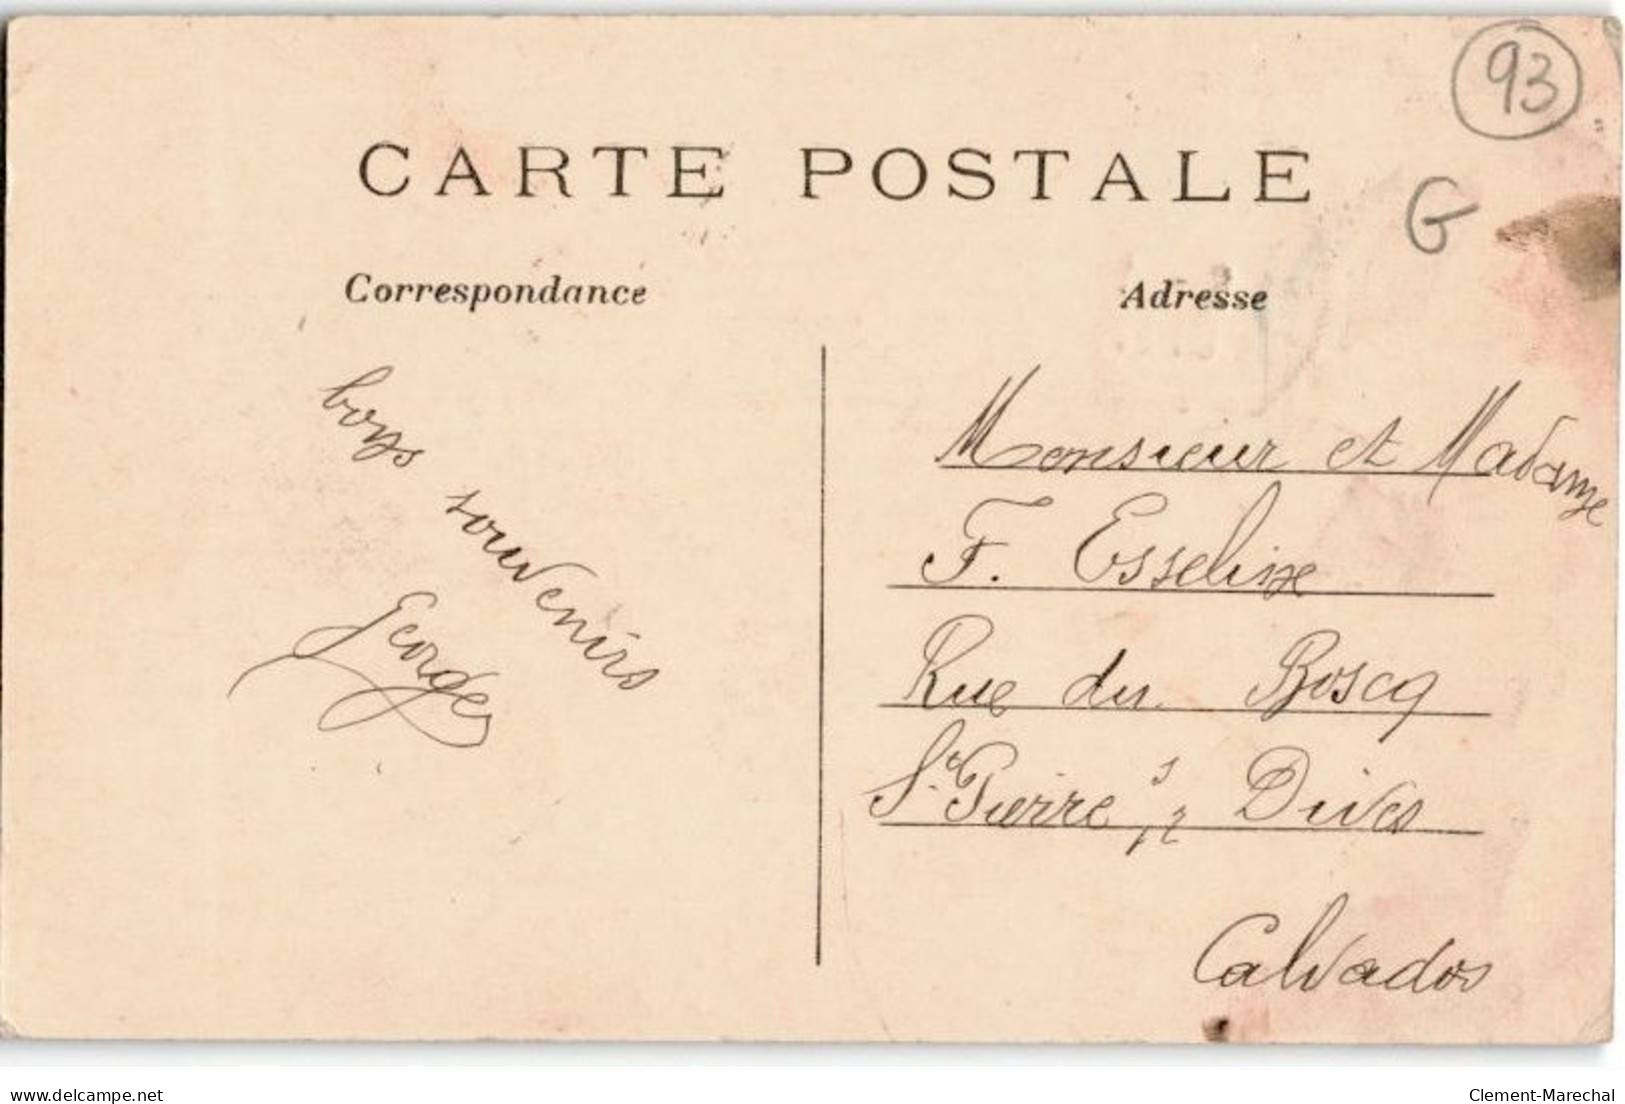 93
CARTE POSTALE
G
Correspondance
Adresse
bons souvenirs
Georges
Monsieur et Madame
F. Esseline
Rue du Boscq
St Pierre s/ Dives
Calvados
delcampe.net
Clement-Marechal